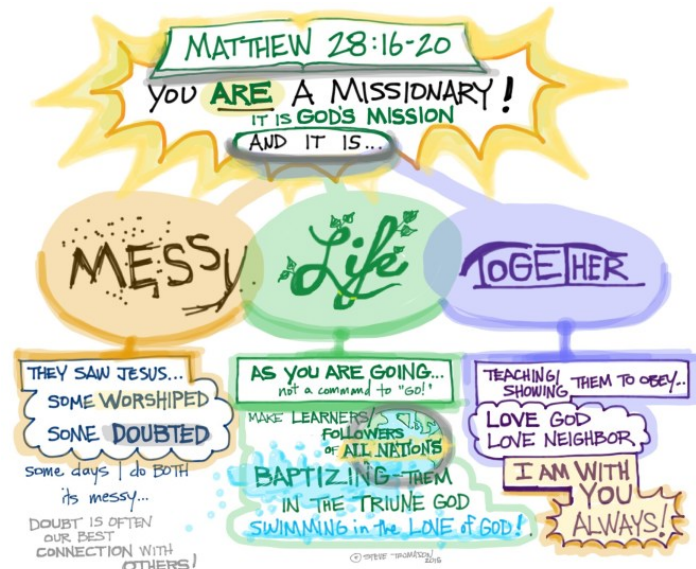 MATTHEW 28:16-20
YOU ARE A MISSIONARY!
IT IS GOD'S MISSION
AND IT IS...
MESSY
Life
TOGETHER
THEY SAW JESUS...
SOME WORSHIPED
SOME DOUBTED
some days I do BOTH
its messy...
DOUBT IS OFTEN
OUR BEST
CONNECTION WITH
OTHERS!
AS YOU ARE GOING...
not a command to "GO!"
MAKE LEARNERS/
FOLLOWERS
OF ALL NATIONS
BAPTIZING THEM
IN THE TRIUNE GOD
SWIMMING in the LOVE of GOD!
© STEVE THOMASON
2016
TEACHING/
SHOWING THEM TO OBEY...
LOVE GOD
LOVE NEIGHBOR
I AM WITH
YOU
ALWAYS!